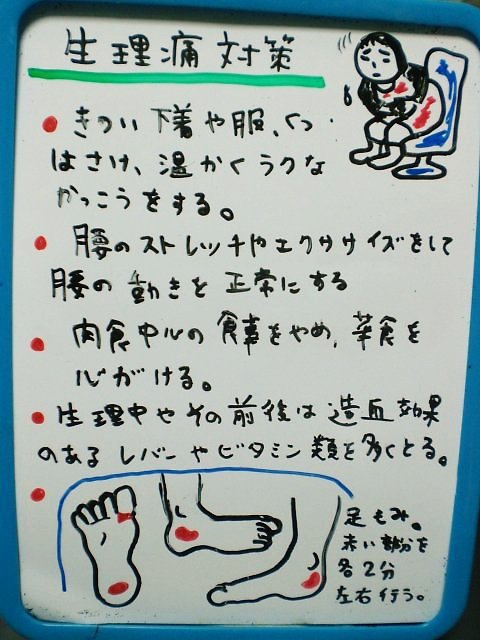 生理痛対策
きつい下着や服、くつ
はさけ、温かくラクな
かっこうをする。
腰のストレッチやエクササイズをして
腰の動きを正常にする
肉食中心の食事をやめ、菜食を
心がける。
生理中やその前後は造血効果
のあるレバーやビタミン類を多くとる。
足もみ。
赤い部分を
各2分
左右行う。